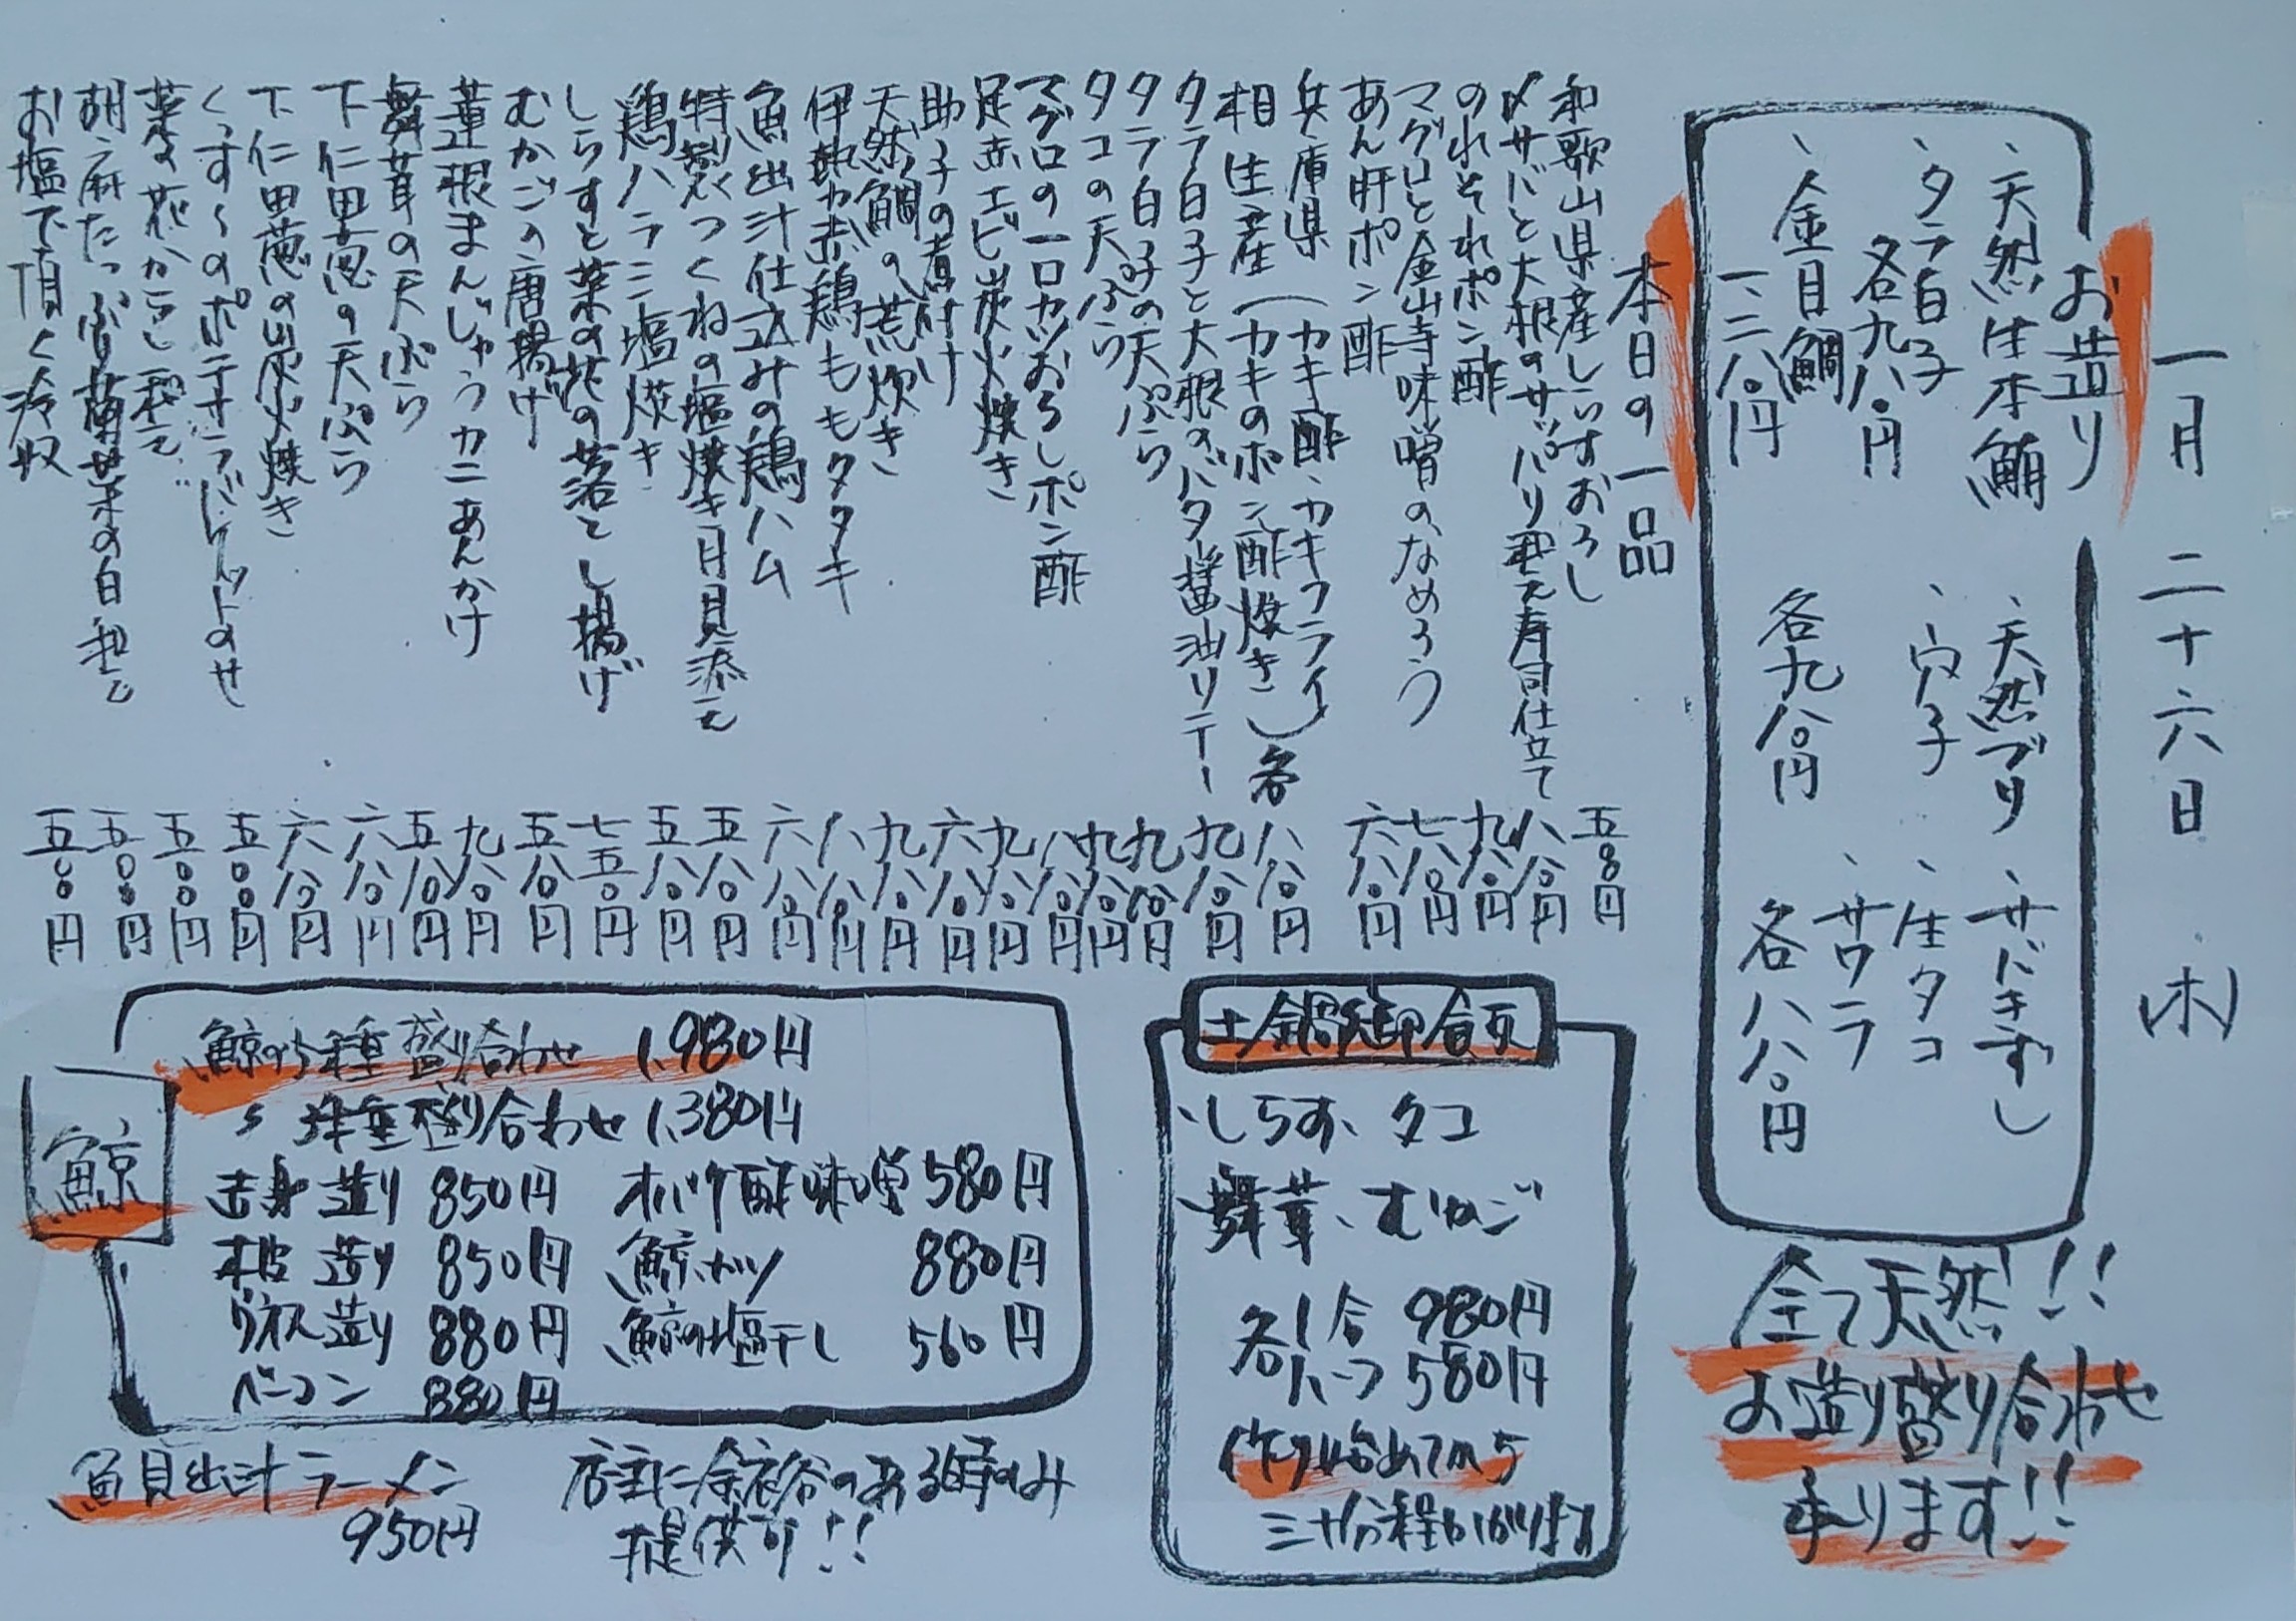 一月二十六日(木)
お造り
、天然生本鮪
、タラ白子
各九八〇円
、金目鯛
一、二八〇円
、天然ブリ
、穴子
各九八〇円
、サバきずし
、生タコ
、サワラ
各八八〇円
全て天然!!
お造り盛り合わせ
承ります!!
本日の一品
和歌山県産しらすおろし 五〇〇円
〆サバと大根のサッパリ和え寿司仕立て 八八〇円
のれそれポン酢 九八〇円
マグロと金山寺味噌のなめろう 七八〇円
あん肝ポン酢 六八〇円
兵庫県
相生産(カキ酢、カキフライ)
(カキのポン酢焼き)各 八八〇円
タラ白子と大根のバタ醤油ソテー 九八〇円
タラ白子の天ぷら 九八〇円
タコの天ぷら 九八〇円
マグロの一口カツおろしポン酢 八八〇円
足赤エビ炭火焼き 九八〇円
助子の煮付け 六八〇円
天然鯛の荒炊き 九八〇円
伊勢赤鶏ももタタキ 八八〇円
魚出汁仕込みの鶏ハム 六八〇円
特製つくねの塩焼き月見添え 五八〇円
鶏ハラミ塩焼き 五八〇円
しらすと菜の花の落とし揚げ 七五〇円
むかごの唐揚げ 五八〇円
蓮根まんじゅうカニあんかけ 九八〇円
舞茸の天ぷら 五八〇円
下仁田葱の天ぷら 六八〇円
下仁田葱の炭火焼き 六八〇円
くっすーのポテサラバケットのせ 五〇〇円
菜の花からし和え 五〇〇円
胡麻たっぷり菊菜の白和え 五〇〇円
お塩で頂く冷奴 五〇〇円
土鍋御飯
、しらす、タコ
、舞茸、むかご
各1合 980円
各ハーフ 580円
作り始めてから
三十分程かかります
鯨
鯨の5種盛り合わせ 1,980円
〃 3種盛り合わせ 1,380円
赤身造り 850円 オバケ酢味噌 580円
本皮造り 850円 鯨カツ 880円
ウネス造り 880円 鯨の塩干し 560円
ベーコン 880円
魚貝出汁ラーメン
950円
店主に余裕のある時のみ
提供可!!